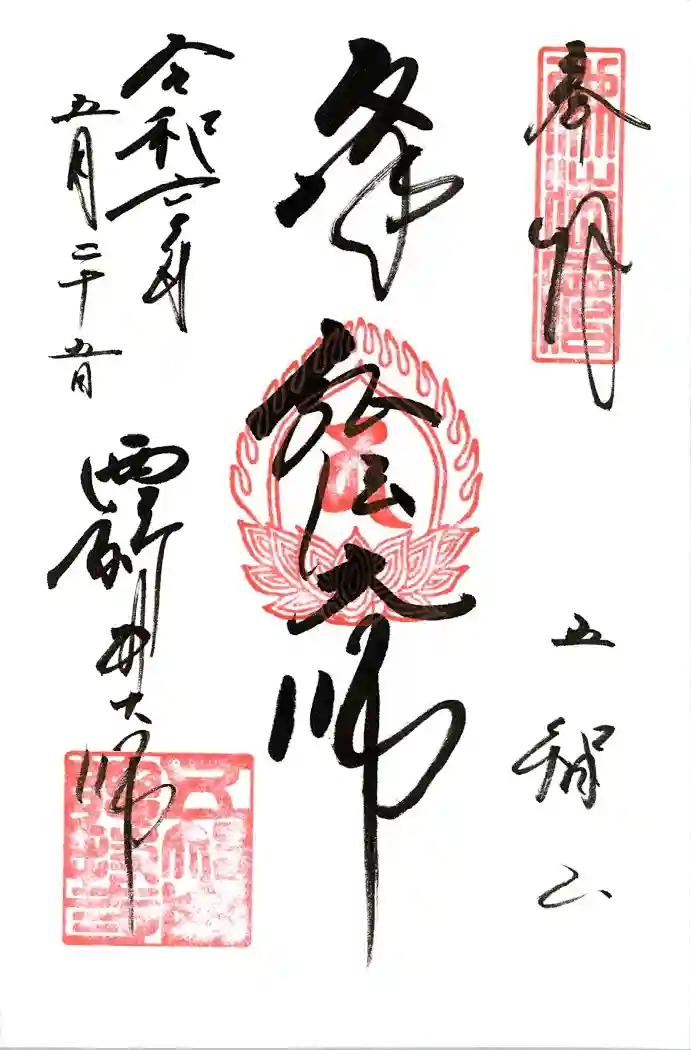 奉拝
五智山
弘法大師
令和六年
五月二十五日
西新井大師